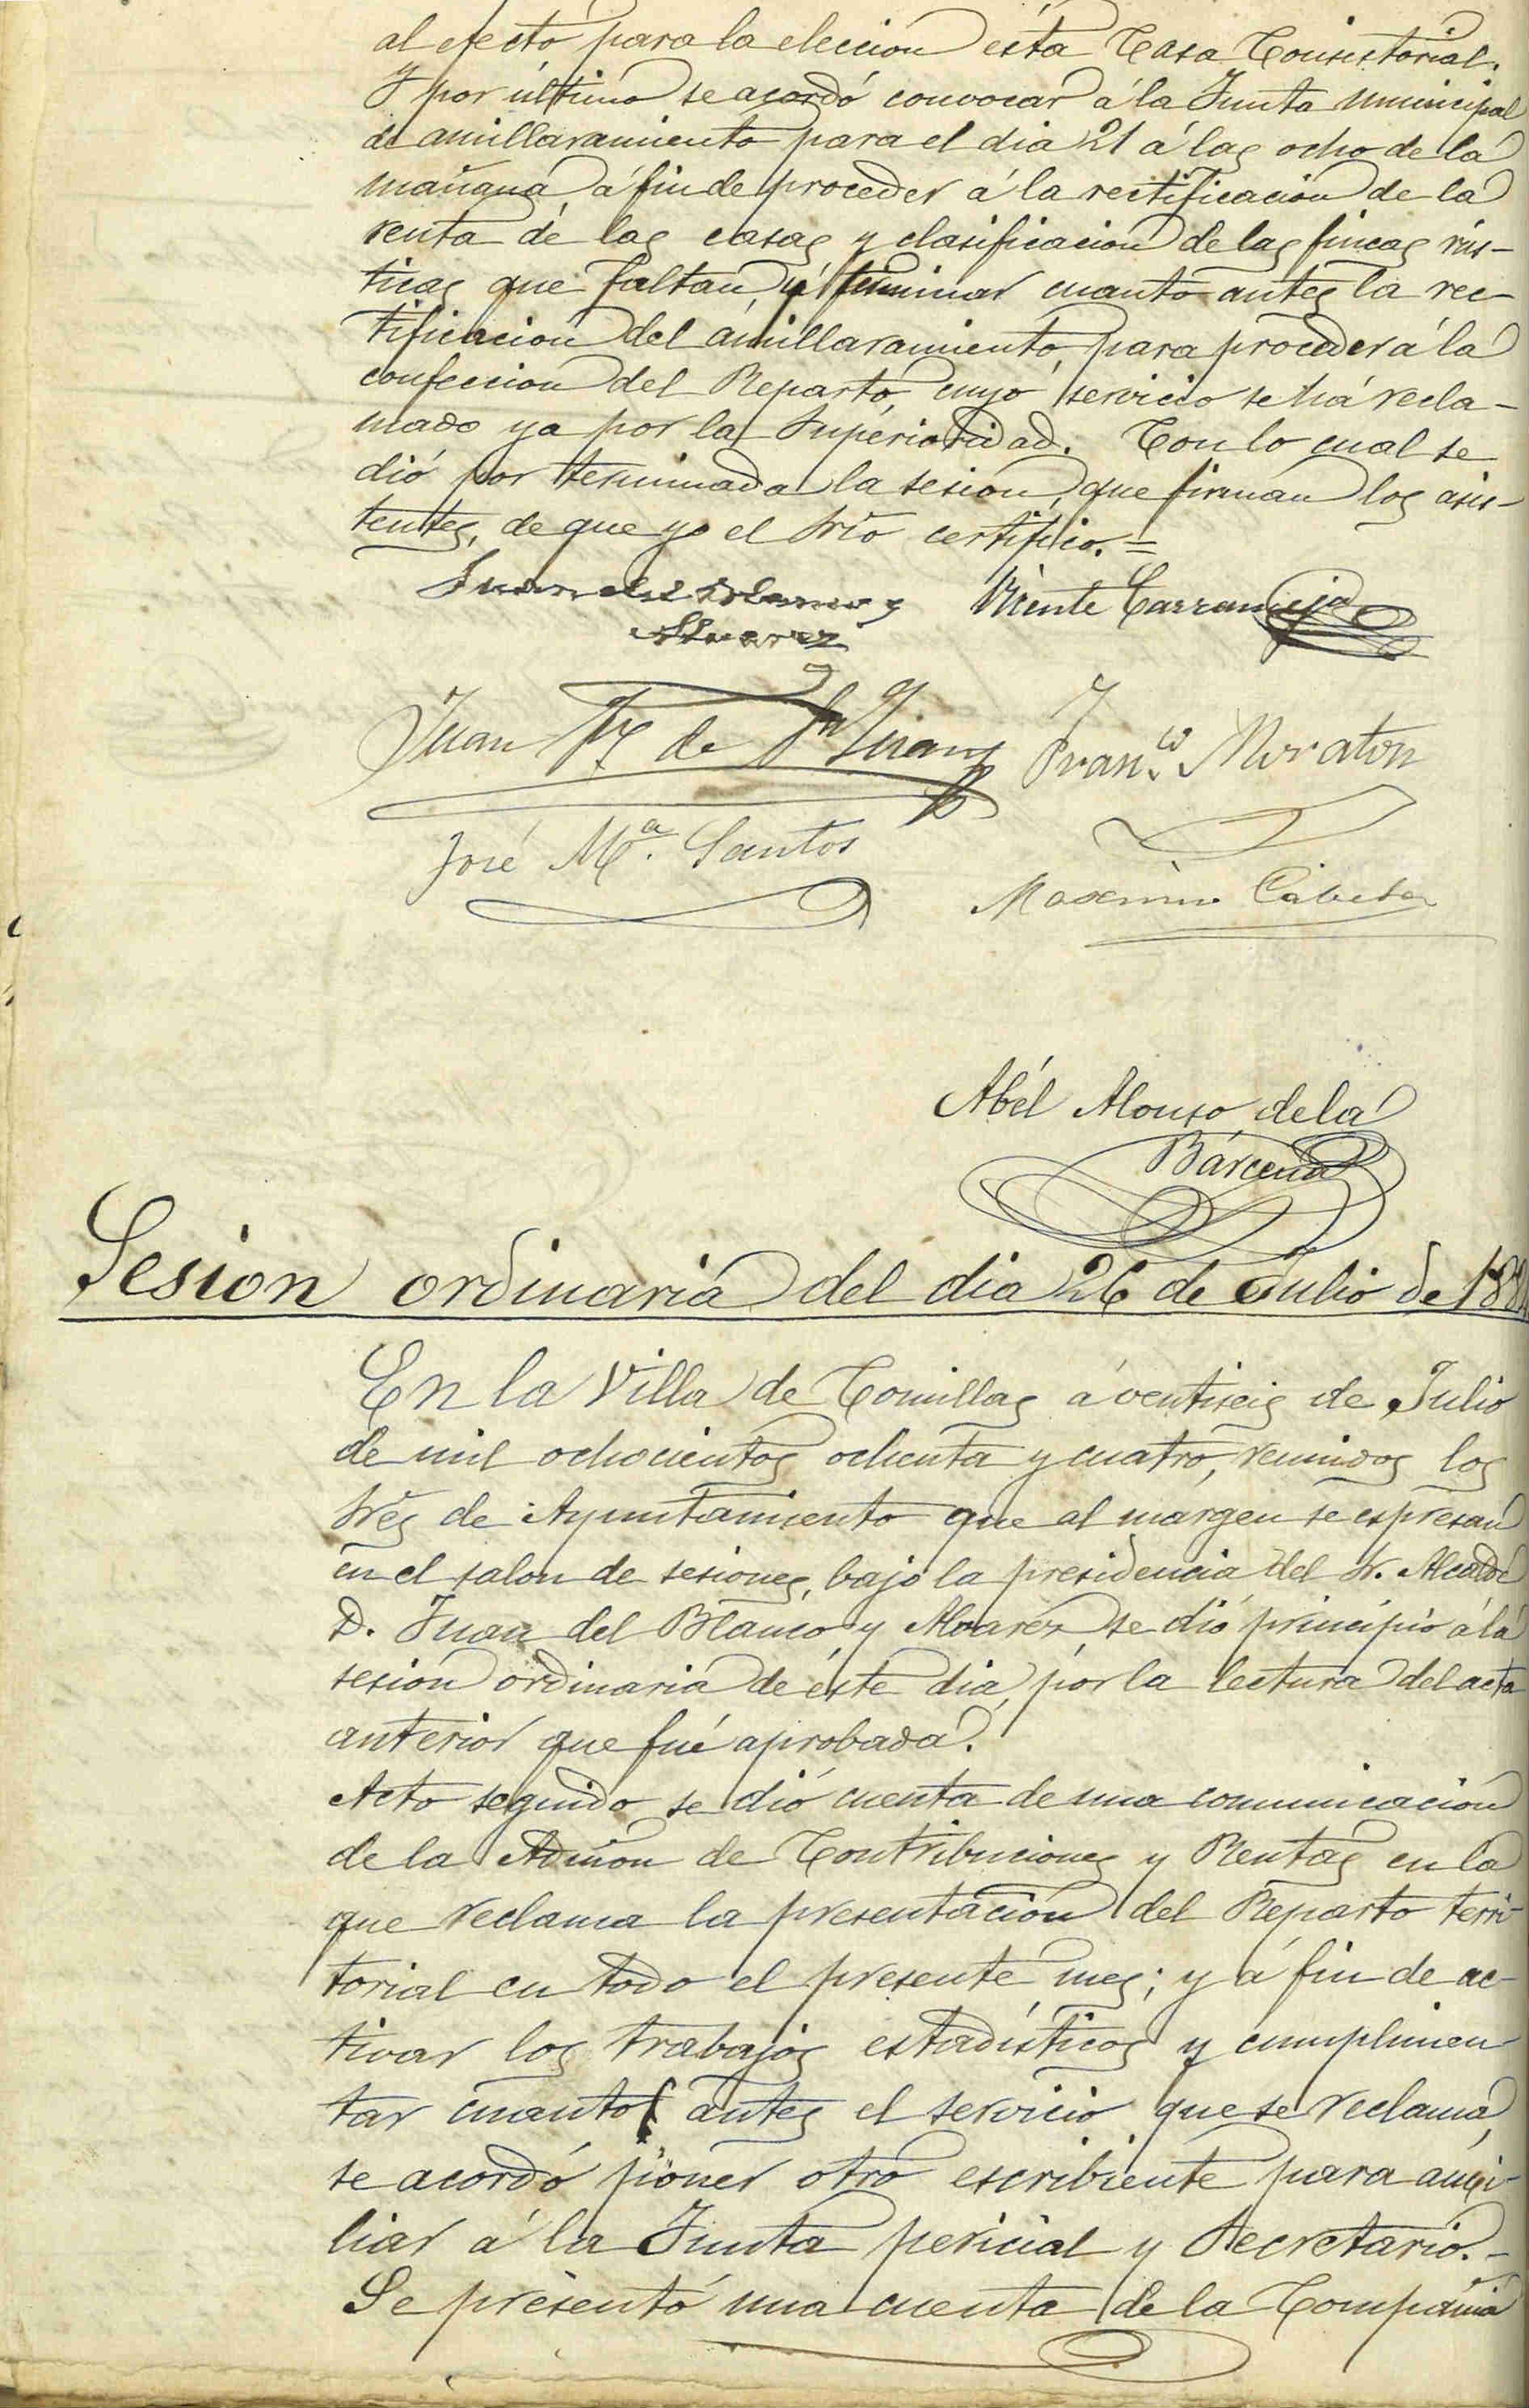 al efecto para la eleccion ésta Casa Consistorial.
Y por último se acordó convocar á la Junta municipal
de amillaramiento para el dia 21 á las ocho de la
mañana, á fin de proceder á la rectificacion de la
renta de las casas y clasificacion de las fincas rús-
ticas que faltan, y terminar cuanto antes la rec-
tificacion del amillaramiento, para proceder á la
confeccion del Reparto, cuyo servicio se há recla-
mado ya por la Superioridad. Con lo cual se
dió por terminada la sesion, que firman los asis-
tentes, de que yo el Srio certifico.=
Juan del Blanco y Vicente Carranceja
Alvarez
Juan de Franco Moraton
José Mª. Santos
Maximino
Abél Alonso de la
Bárcena
Sesion ordinaria del dia 26 de Julio de 1884
En la Villa de Comillas á ventiseis de Julio
de mil ochocientos ochenta y cuatro, reunidos los
Sres de Ayuntamiento que al márgen se espresan
en el salon de sesiones, bajo la presidencia del Sr. Alcalde
D. Juan del Blanco y Alvarez, se dió principio á la
sesion ordinaria de éste dia, por la lectura del acta
anterior que fué aprobada.
Acto seguido se dió cuenta de una comunicacion
de la Admon de Contribuciones y Rentas en la
que reclama la presentacion del Reparto terri-
torial en todo el presente mes; y á fin de ac-
tivar los trabajos estadísticos y cumplimen-
tar cuanto antes el servicio que se reclama,
se acordó poner otro escribiente para auxi-
liar á la Junta pericial y Secretario.-
Se presentó una cuenta de la Compañia